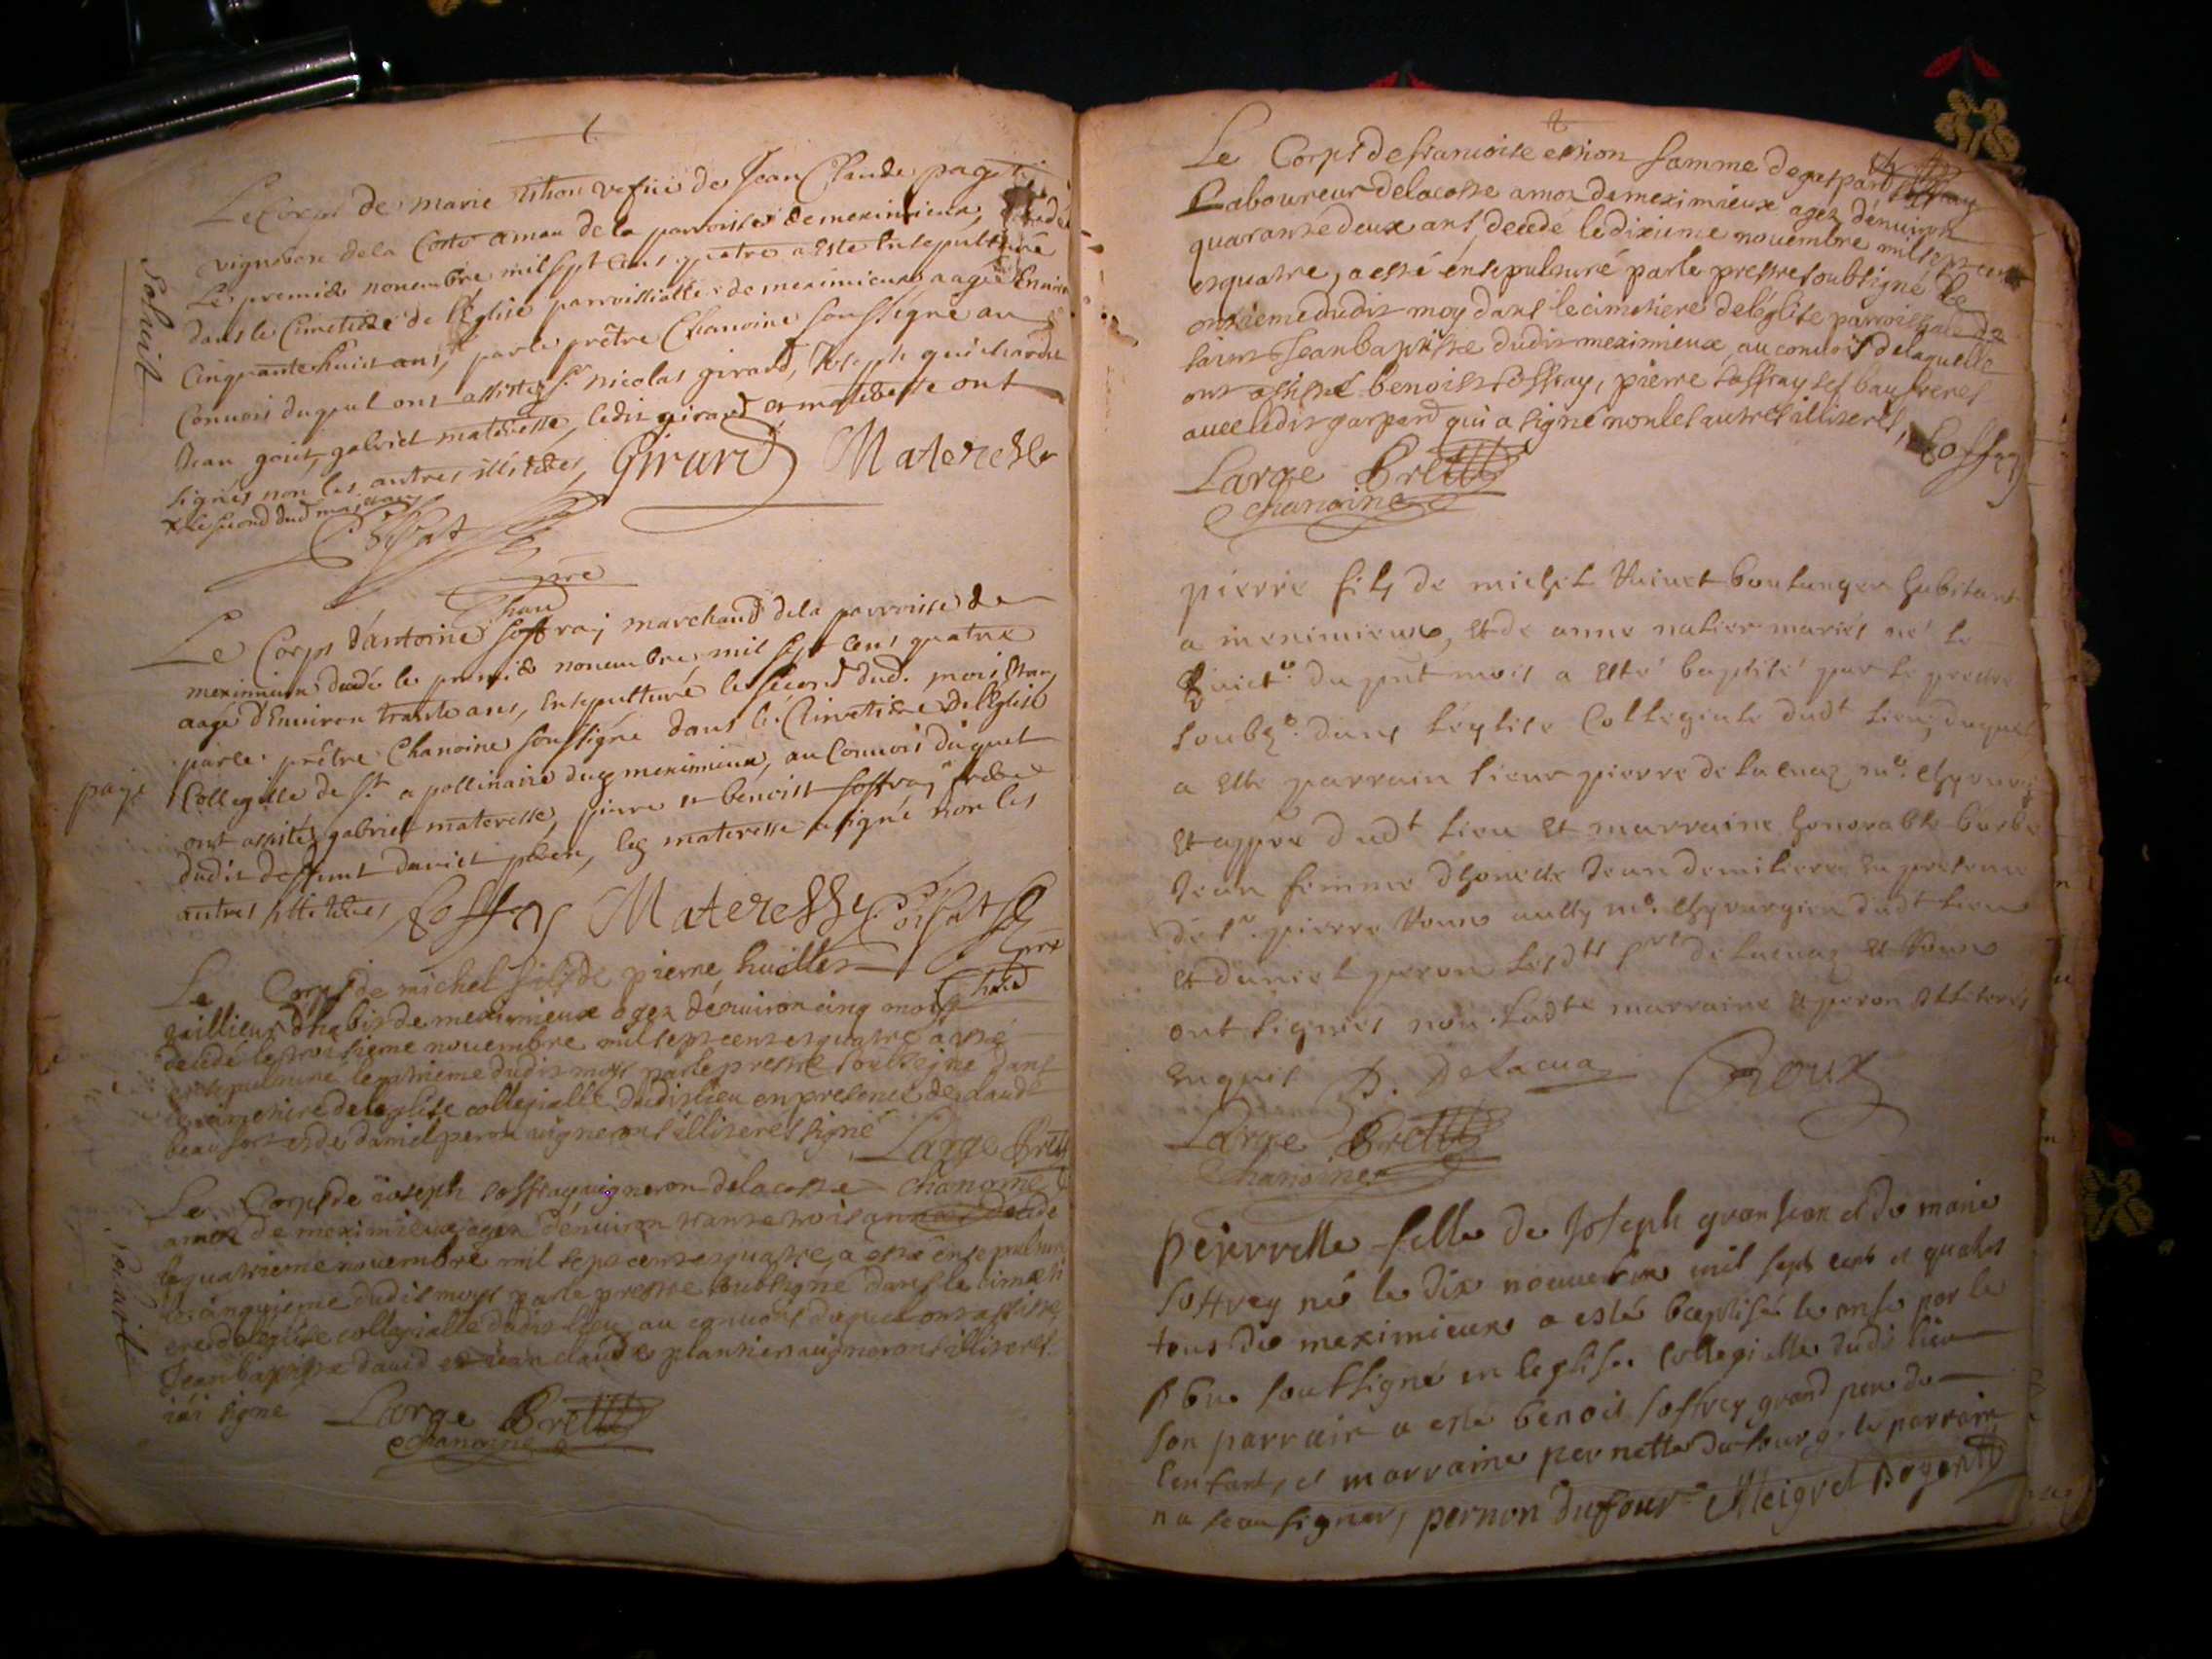 Le Corps de marie vefue de Jean Claude
vigneron de la Coste amau de la parroisse de meximieux,
Le premier nouembre mil sept cens quatre a este Ensepulturé
dans le Cimetiere de l'Eglise parroissialle de meximieux aagé Enuiron
Cinquante huict ans, par le prêtre Chanoine soussigné au
Conuois duquel ont assistez Sr nicolas girard, Joseph guichard
Jean goiet, gabriel materesse, ledit girard et materesse ont
signés non les autres illiteres, Girard Materesse
x le second dud mois
pre
Chan
Le Corps d'antoine soffray marchand de la parroisse de
meximieux decedé le premier nouembre mil sept cens quatre
aagé d'Enuiron trante ans, Ensepulturé le second dud. mois
par le prêtre Chanoine soussigné dans le Cimetiere de l'Eglise
Collegialle de St apollinaire dud meximieux, au Conuois duquel
ont assistéz gabriel materesse, pierre et benoist soffray
dudit deffunt daniel peron, led materesse a signé non les
autres illiteres Soffray Materesse
pre
Chan
Le Corps de michel fils de pierre huillier
taillieur d'habis de meximieux agez d'enuiron cinq mois
decedé le troisieme nouembre mil sept cens et quatre a esté
ensepulturé le quatrieme dudit moys par le prestre soubsigné dans
le cimetiere de l'eglise collegialle dudit lieu en presence de claude
beaufort et de daniel peron vignerons illiteres signé Large Prettre
Le Corps de ioseph soffray vigneron de la coste chanoine
amoz de meximieux agez d'enuiron trante trois annees decede
le quatrieme nouembre mil sept cens et quatre, a esté ensepulturé
le cinquieme dudit moys par le prestre soubsigné dans le cimeti
ere de l'eglise collegialle dudit lieu au conuois duquel ont assisté
Jean baptiste dauid et iean claude plantier vignerons illiteres
iéi signé Large Prettre
chanoine
Le Corps de francoise famme de gaspard soffray
Laboureur de la coste amoz de meximieux agez d'enuiron
quarante deux ans, decede le dixieme nouembre mil sept cens
et quatre, a esté ensepulturé par le prestre soubsigné le
onzieme dudit moy dans le cimetiere de l'église parroissiale de
saint Jean baptiste dudit meximieux, au conuois de laquelle
ont assisté benoist soffray, pierre soffray ses baufreres
auec ledit gaspard qui a signé non les autres illiteres, Soffray
Large Prettre
chanoine
pierre fils de michel boulanger habitant
a meximieux, et de anne mariés né le
huicte. du pnt mois a esté baptisé par le prestre
soubz. dans l'église Collegiale dudt lieu, duquel
a esté parrain sieur pierre de lacuaz me. Chyrurgien
et appre dudt lieu et marraine honorable
Jean femme d'honeste Jean en presence
de sr. pierre Roux aussy me. Chyrurgien dudt lieu
et daniel peron lesdts srs de lacuaz et Roux
ont signés non ladte marraine et peron illiterés
Enquis P. Delacua Roux
Large Prettre
chanoine
peierrette fille de Joseph granjean et de marie
soffrey né le dix nouembre mil sept cent et quatre
tous de meximieux a esté baptisée le onse par le
soubsigné en leglise Collegialle dudit lieu
son parrain a este benoit soffrey grand pere de
lenfant, et marraine pernette dufour le parrain
na sceu signer, pernon dufour